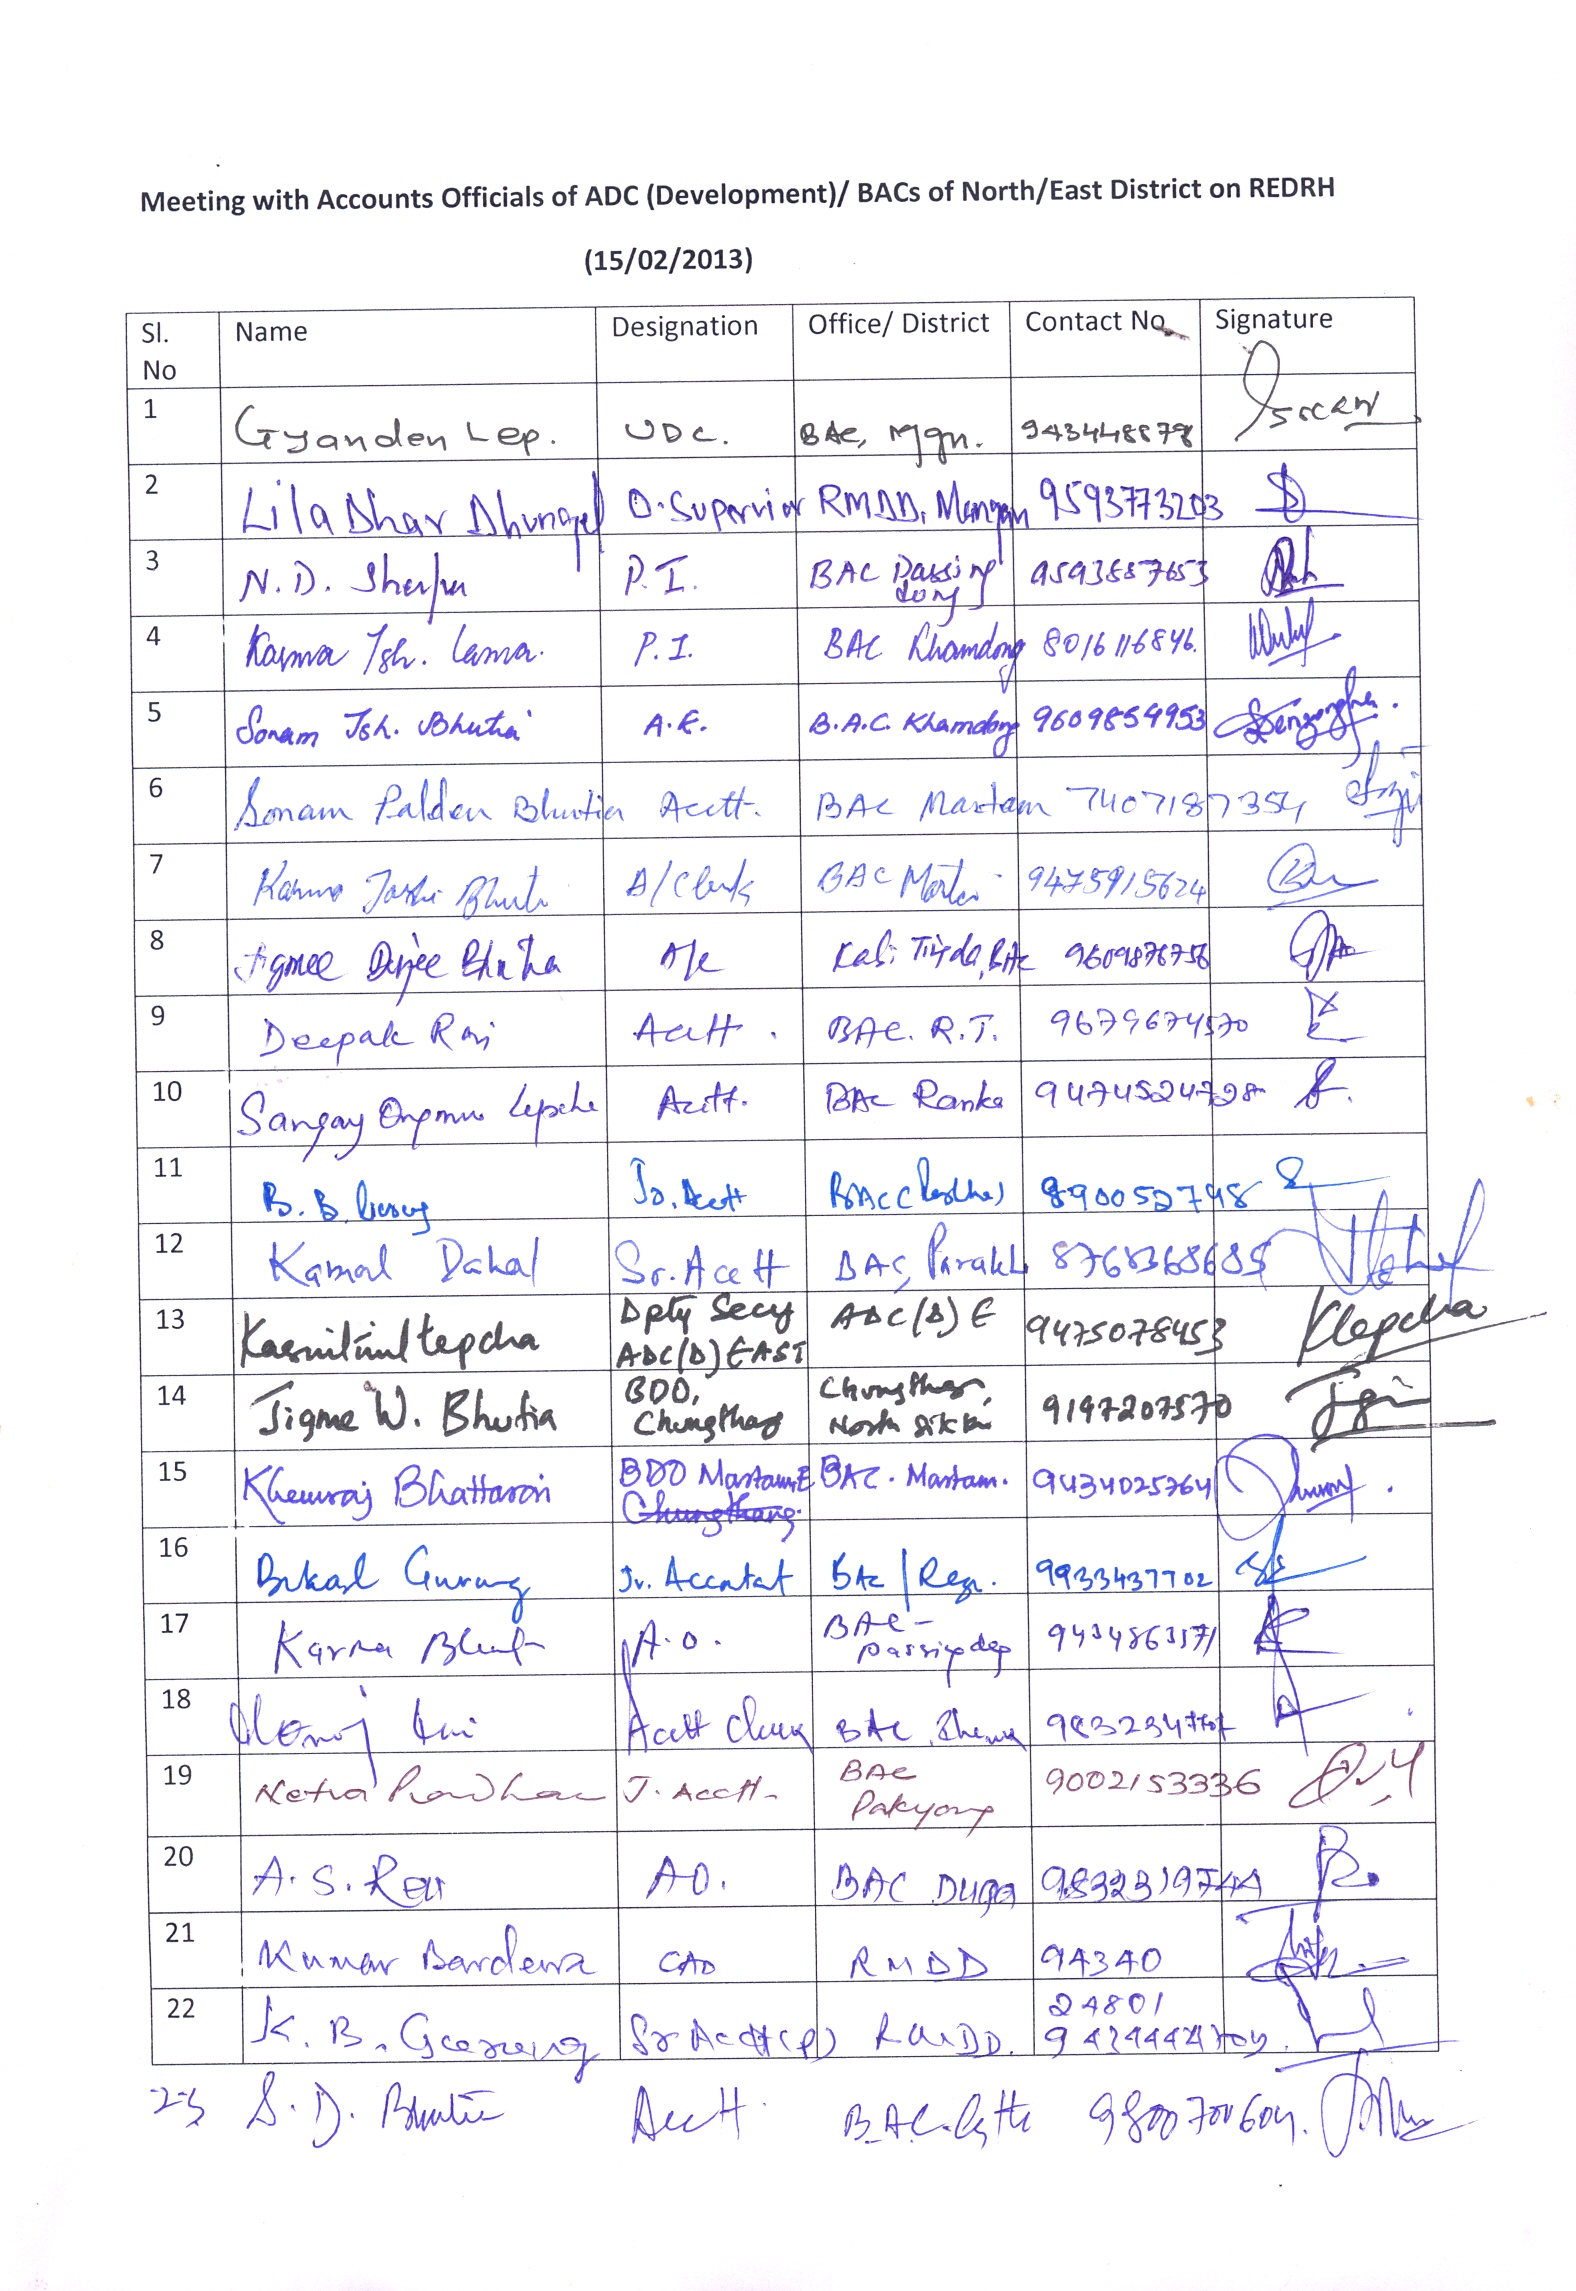 Meeting with Accounts Officials of ADC (Development)/ BACs of North/East District on REDRH
(15/02/2013)
Sl. No Name Designation Office/ District Contact No Signature
1 Gyanden Lep. UDC. BAC, Mgn.
2 Lila Dhar Dhungel O. Supervior RMDD, Mangan 9593773203
3 N.D. Sherpa P.I. BAC Passing dong 9593887653
4 Karma Tsh. Lama. P.I. BAC Khamdong 8016116846.
5 Sonam Tsh. Bhutia A.E. B.A.C. Khamdong 9609854953
6 Sonam Palden Bhutia Acctt. BAC Martam 7407187354
7 Karma Tashi Bhutia A/Clerk BAC 9475915624
8 Jigmee Dorjee Bhutia A/c Kabi Tingda, BAC 9609876756
9 Deepak Rai Acctt. BAC. R.T. 9679674570
10 Sangay Lepcha Acctt. BAC Ranka 9474524728
11 B. B. Jr. Acctt 8900527498
12 Kamal Dahal Sr. Acctt BAC, Parakha 8768368685
13 Lepcha Dpty Secy ADC(D) EAST ADC(D) E 9475078453 Klepcha
14 Jigme W. Bhutia BDO, Chungthang Chungthang, North Sikkim 9197207570
15 Khemraj Bhattarai BDO Martam, E Chungthang. BAC. Martam. 9434025764
16 Bikash Gurung Jr. Accntat BAC / Regu. 9933437702
17 Karma A.O. BAC - Passingdong
18 Manoj Rai Acctt Clerk BAC
19 Netra Pradhan J. Acctt. BAC Pakyong 9002153336
20 A.S. Rai AO. BAC Duga 9832319744
21 Kumar Bardewa CAO RMDD 94340 24801
22 K. B. Gurung Sr Acctt(P) RMDD.
23 S. D. Bhutia Acctt. B.A.C. 9800700604.